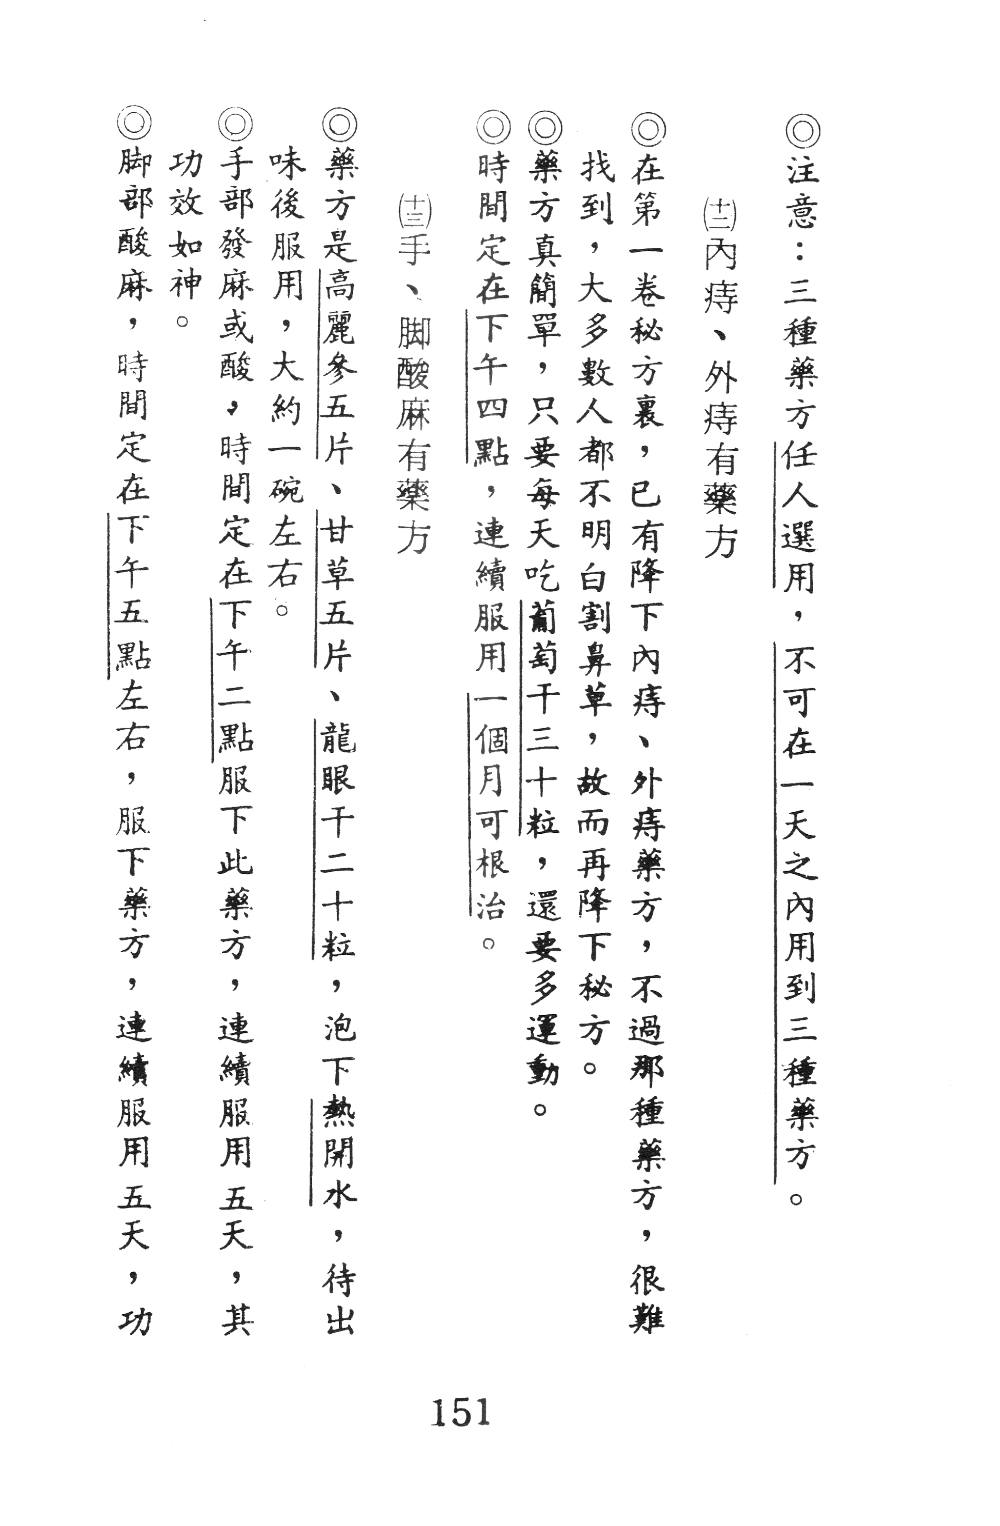 ◎注意：三種藥方任人選用，不可在一天之內用到三種藥方。
㈩內痔、外痔有藥方
◎在第一卷秘方裏，已有降下內痔、外痔藥方，不過那種藥方，很難
找到，大多數人都不明白割鼻草，故而再降下秘方。
◎藥方真簡單，只要每天吃葡萄干三十粒，還要多運動。
◎時間定在下午四點，連續服用一個月可根治。
(十三)手、脚酸麻有藥方
◎藥方是高麗參五片、甘草五片、龍眼干二十粒，泡下熱開水，待出
味後服用，大約一碗左右。
◎手部發麻或酸，時間定在下午二點服下此藥方，連續服用五天，其
功效如神。
◎脚部酸麻，時間定在下午五點左右，服下藥方，連續服用五天，功
151